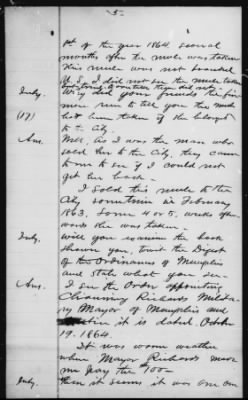 5-
1st of the year 1864 several
months after the mule was taken
this mule was not branded
U.S. I did not see the mule taken
Why did your friends the
men run to tell you this mule
had been taken if she belonged
to the City.
Well, as I was the man who
sold her to the City, they came
to me to see if I could not
get her back -
I sold this mule to the
City sometime in February
1863, some 4 or 5, weeks after-
wards she was taken -
Will you examine the book
shown you, that the Digest
of the Ordinances of Memphis
and state what you see -
I see the Order appointing
Channing Richards Milita-
ry Mayor of Memphis and
it is dated Octobr
19. 1864.
It was warm weather
when Mayor Richards
me pay the $100 -
Then it seems it was one
Indg.
(17)
Ans.
Indg.
Ans.
Indg.